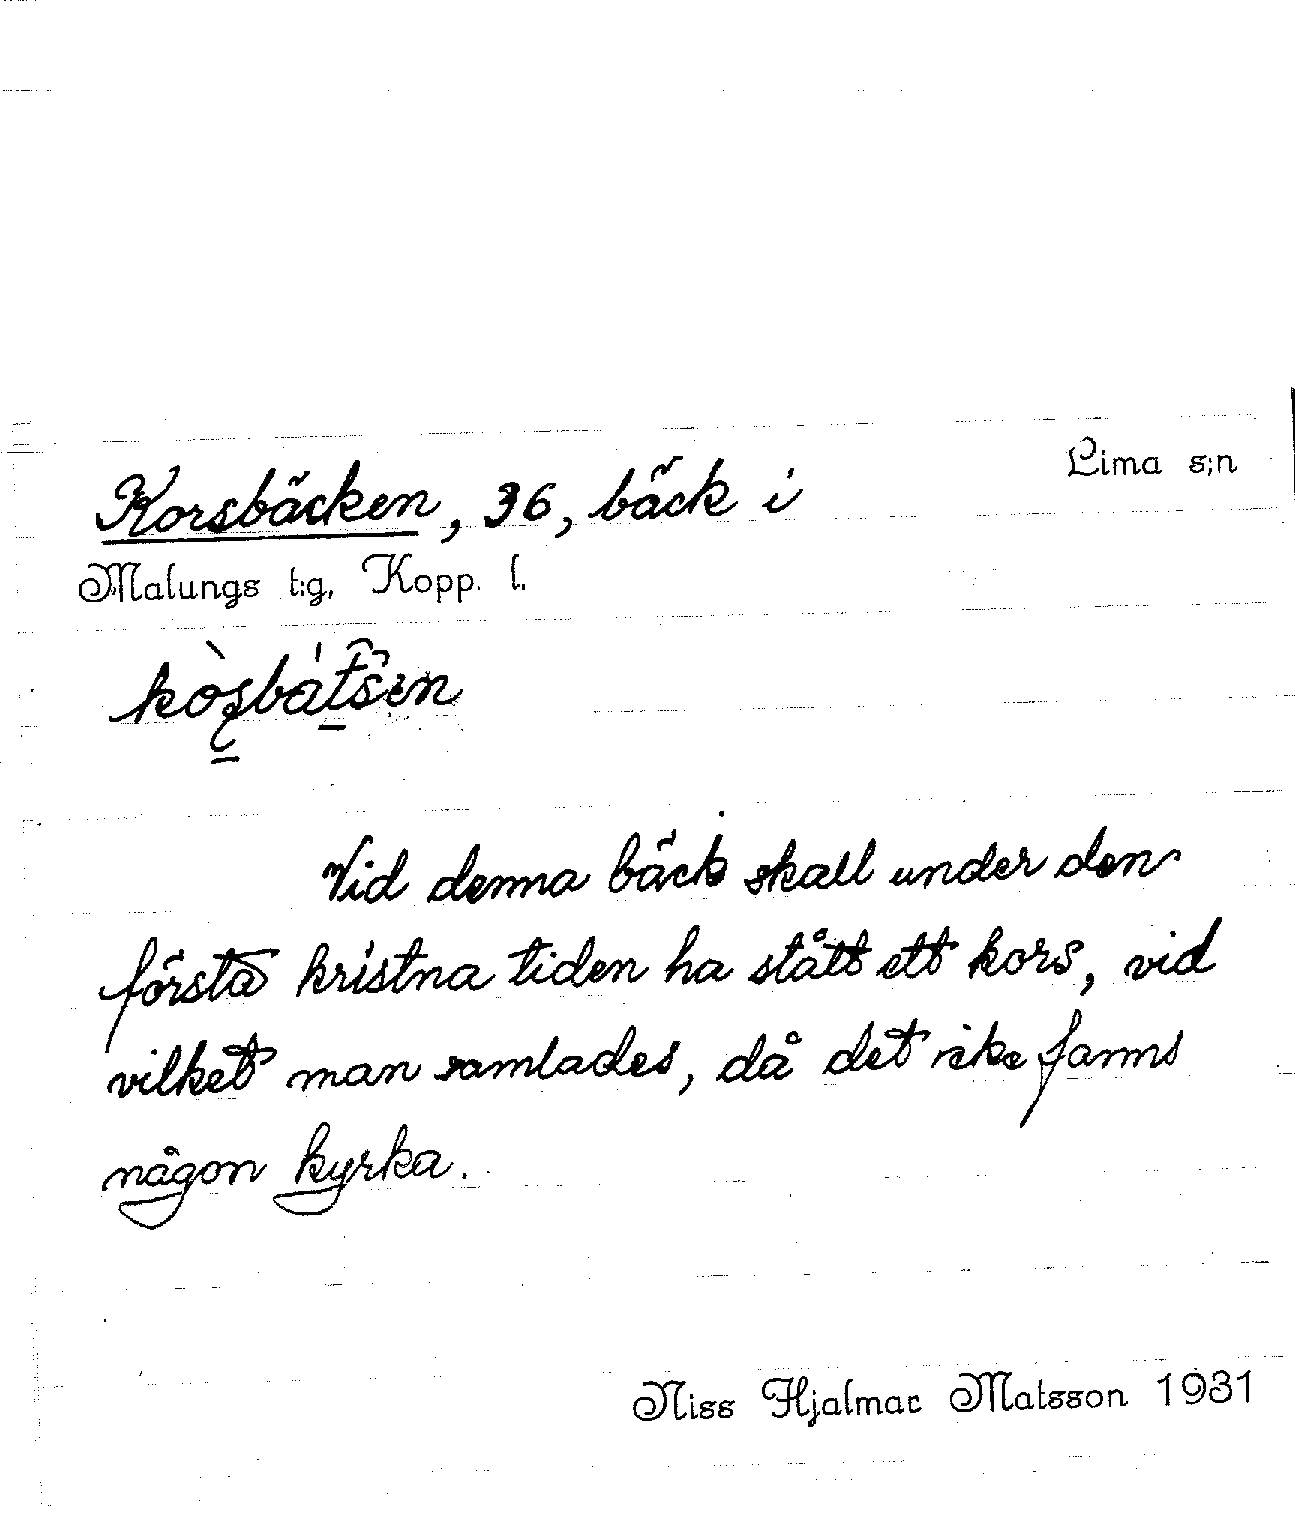 Lima s:n
Korsbäcken, 36, bäck i
Malungs t:g, Kopp. l.
Vid denna bäck skall under den
första kristna tiden ha stått ett kors, vid
vilket man samlades, då det icke fanns
någon kyrka.
Niss Hjalmar Matsson 1931